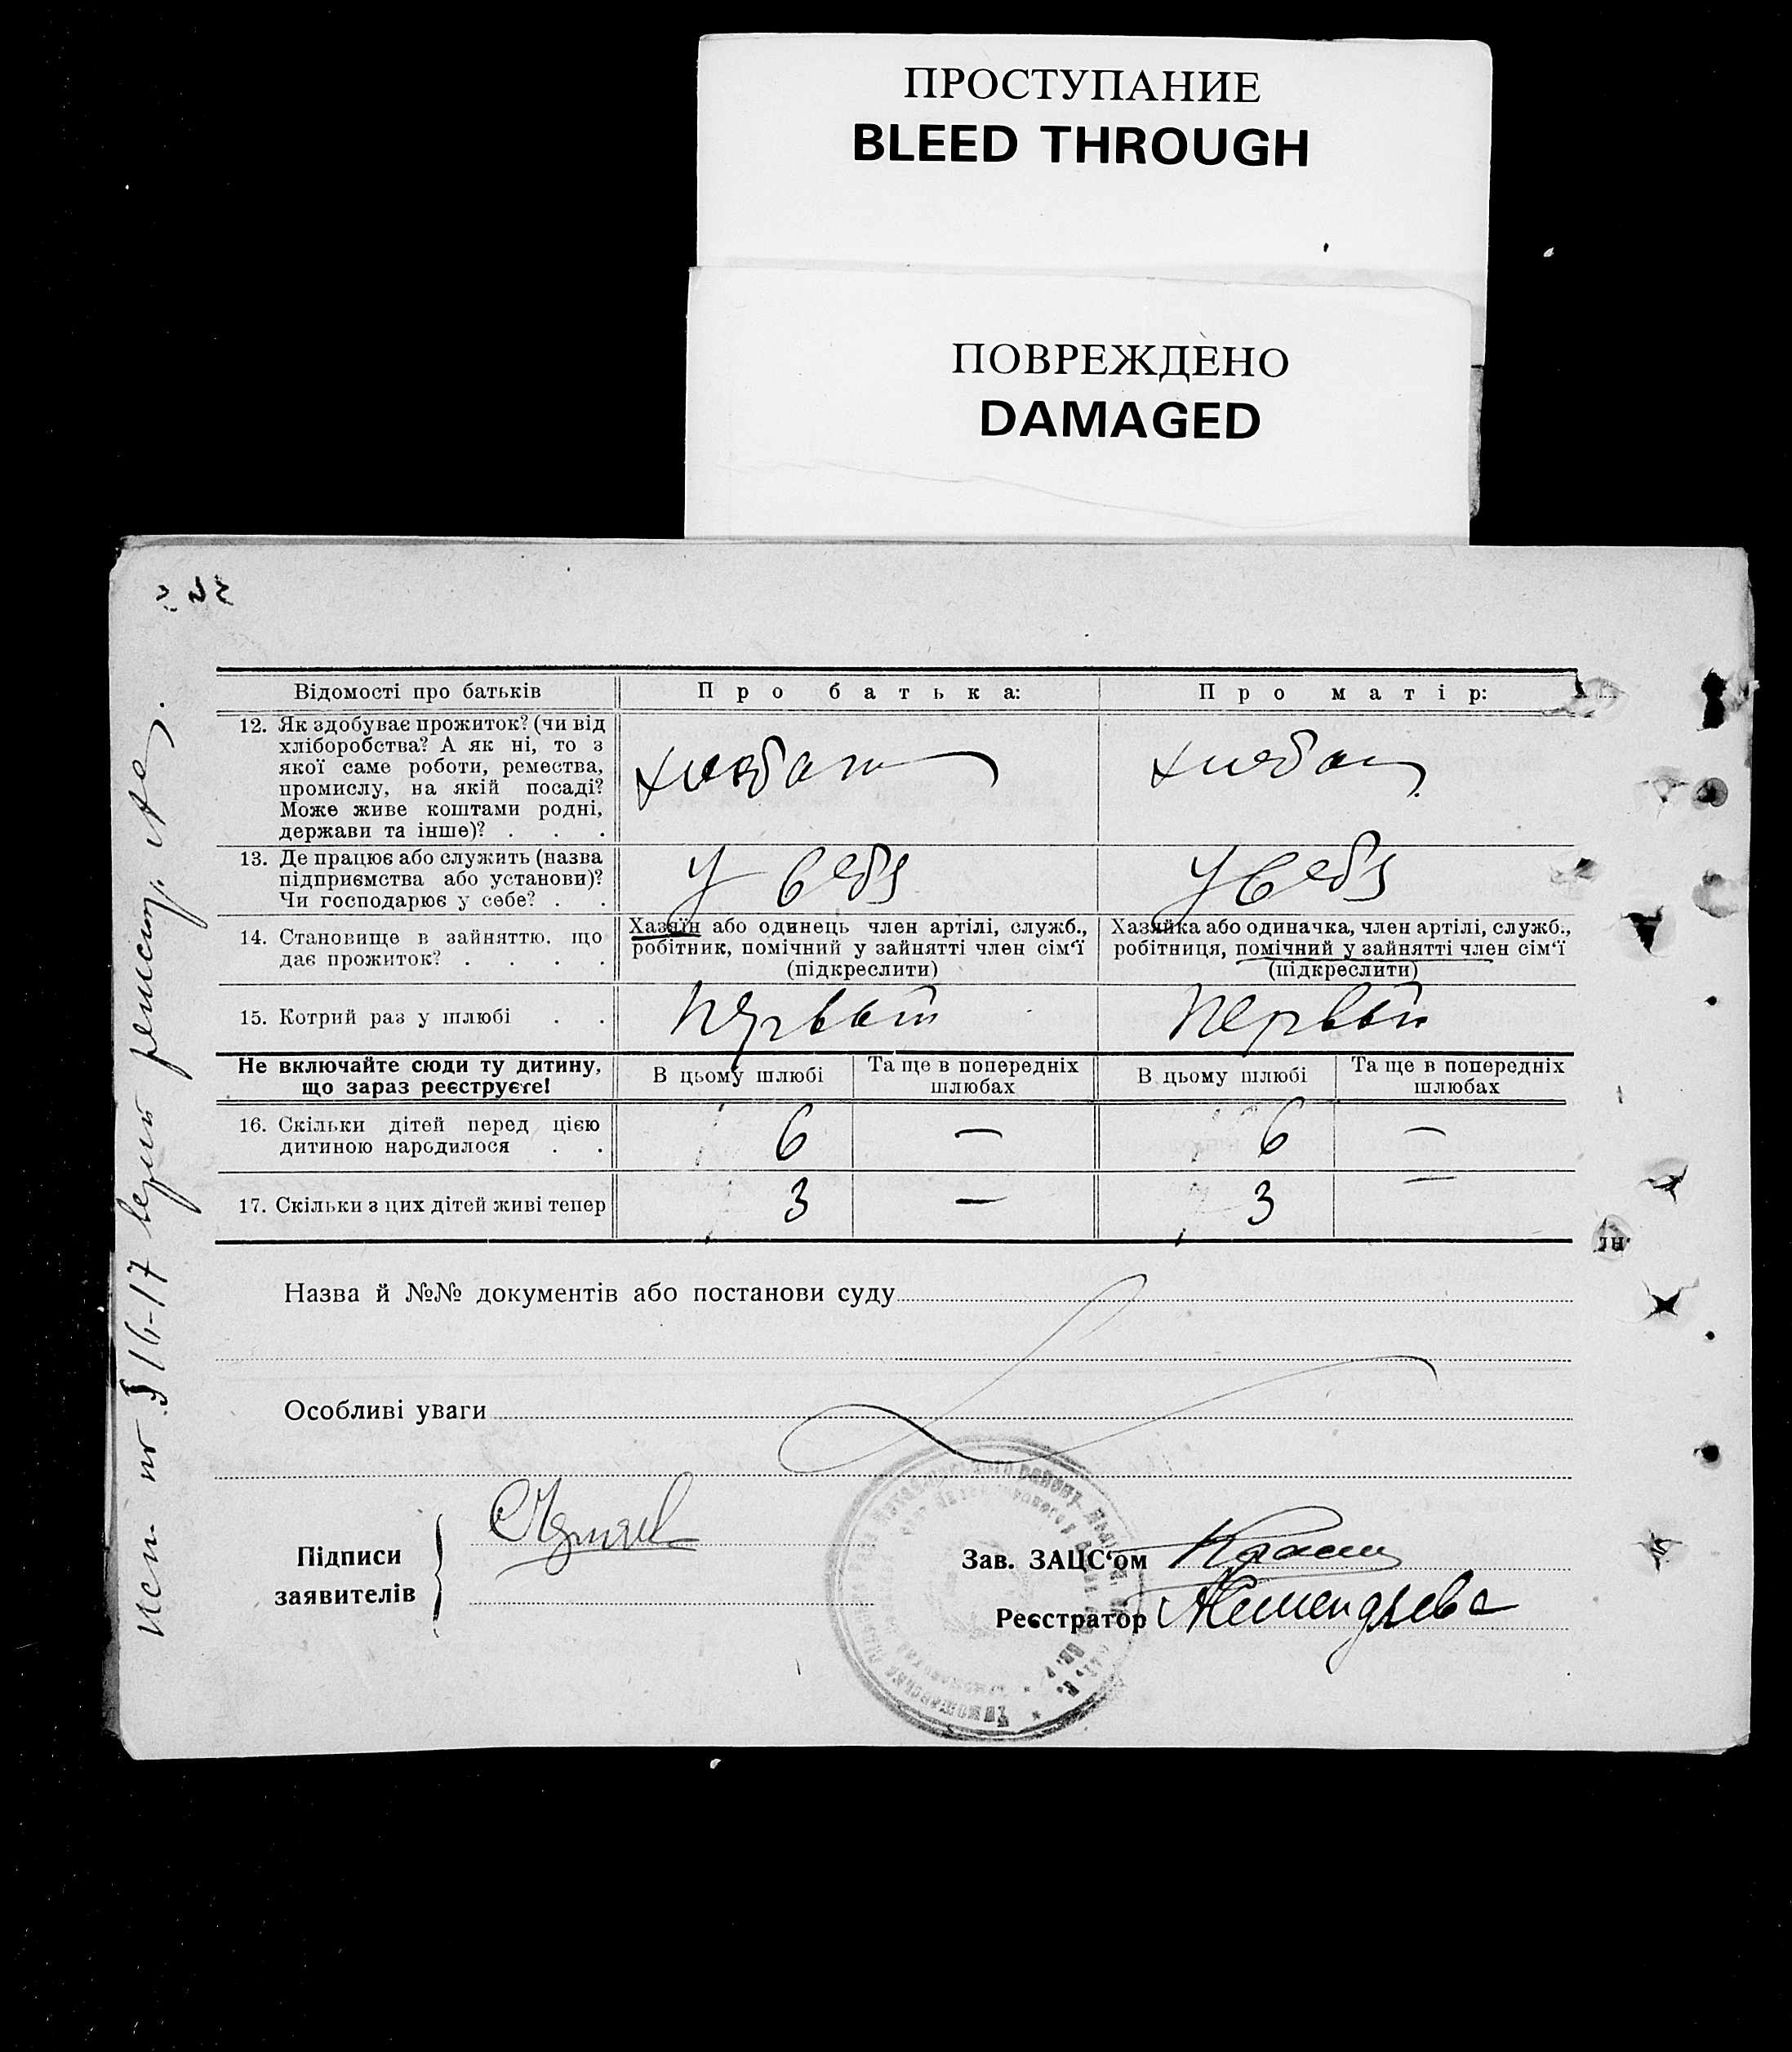 ПРОСТУПАНИЕ
BLEED THROUGH
ПОВРЕЖДЕНО
DAMAGED
Відомості про батьків
Про батька:
Про матір:
12. Як здобуває прожиток? (чи від
хліборобства? А як ні, то з
якої саме роботи, ремества,
промислу, на якій посаді?
Може живе коштами родні,
держави та інше)? . . .
хлебопаш
хлебопаш
13. Де працює або служить (назва
підприємства або установи)?
Чи господарює у себе? . .
У себя
У себя
14. Становище в зайняттю, що
дає прожиток? . . . .
Хазяїн або одинець член артілі, служб.,
робітник, помічний у зайнятті член сім‘ї
(підкреслити)
Хазяйка або одиначка, член артілі, служб.,
робітниця, помічний у зайнятті член сім‘ї
(підкреслити)
15. Котрий раз у шлюбі . .
первый
первый
Не включайте сюди ту дитину,
що зараз реєструєте!
В цьому шлюбі
Та ще в попередніх
шлюбах
В цьому шлюбі
Та ще в попередніх
шлюбах
16. Скільки дітей перед цією
дитиною народилося . .
6 — 6 —
17. Скільки з цих дітей живі тепер
3 — 3 —
Назва й №№ документів або постанови суду
Особливі уваги
Підписи
заявителів
Зав. ЗАЦС‘ом
Реєстратор
16-17